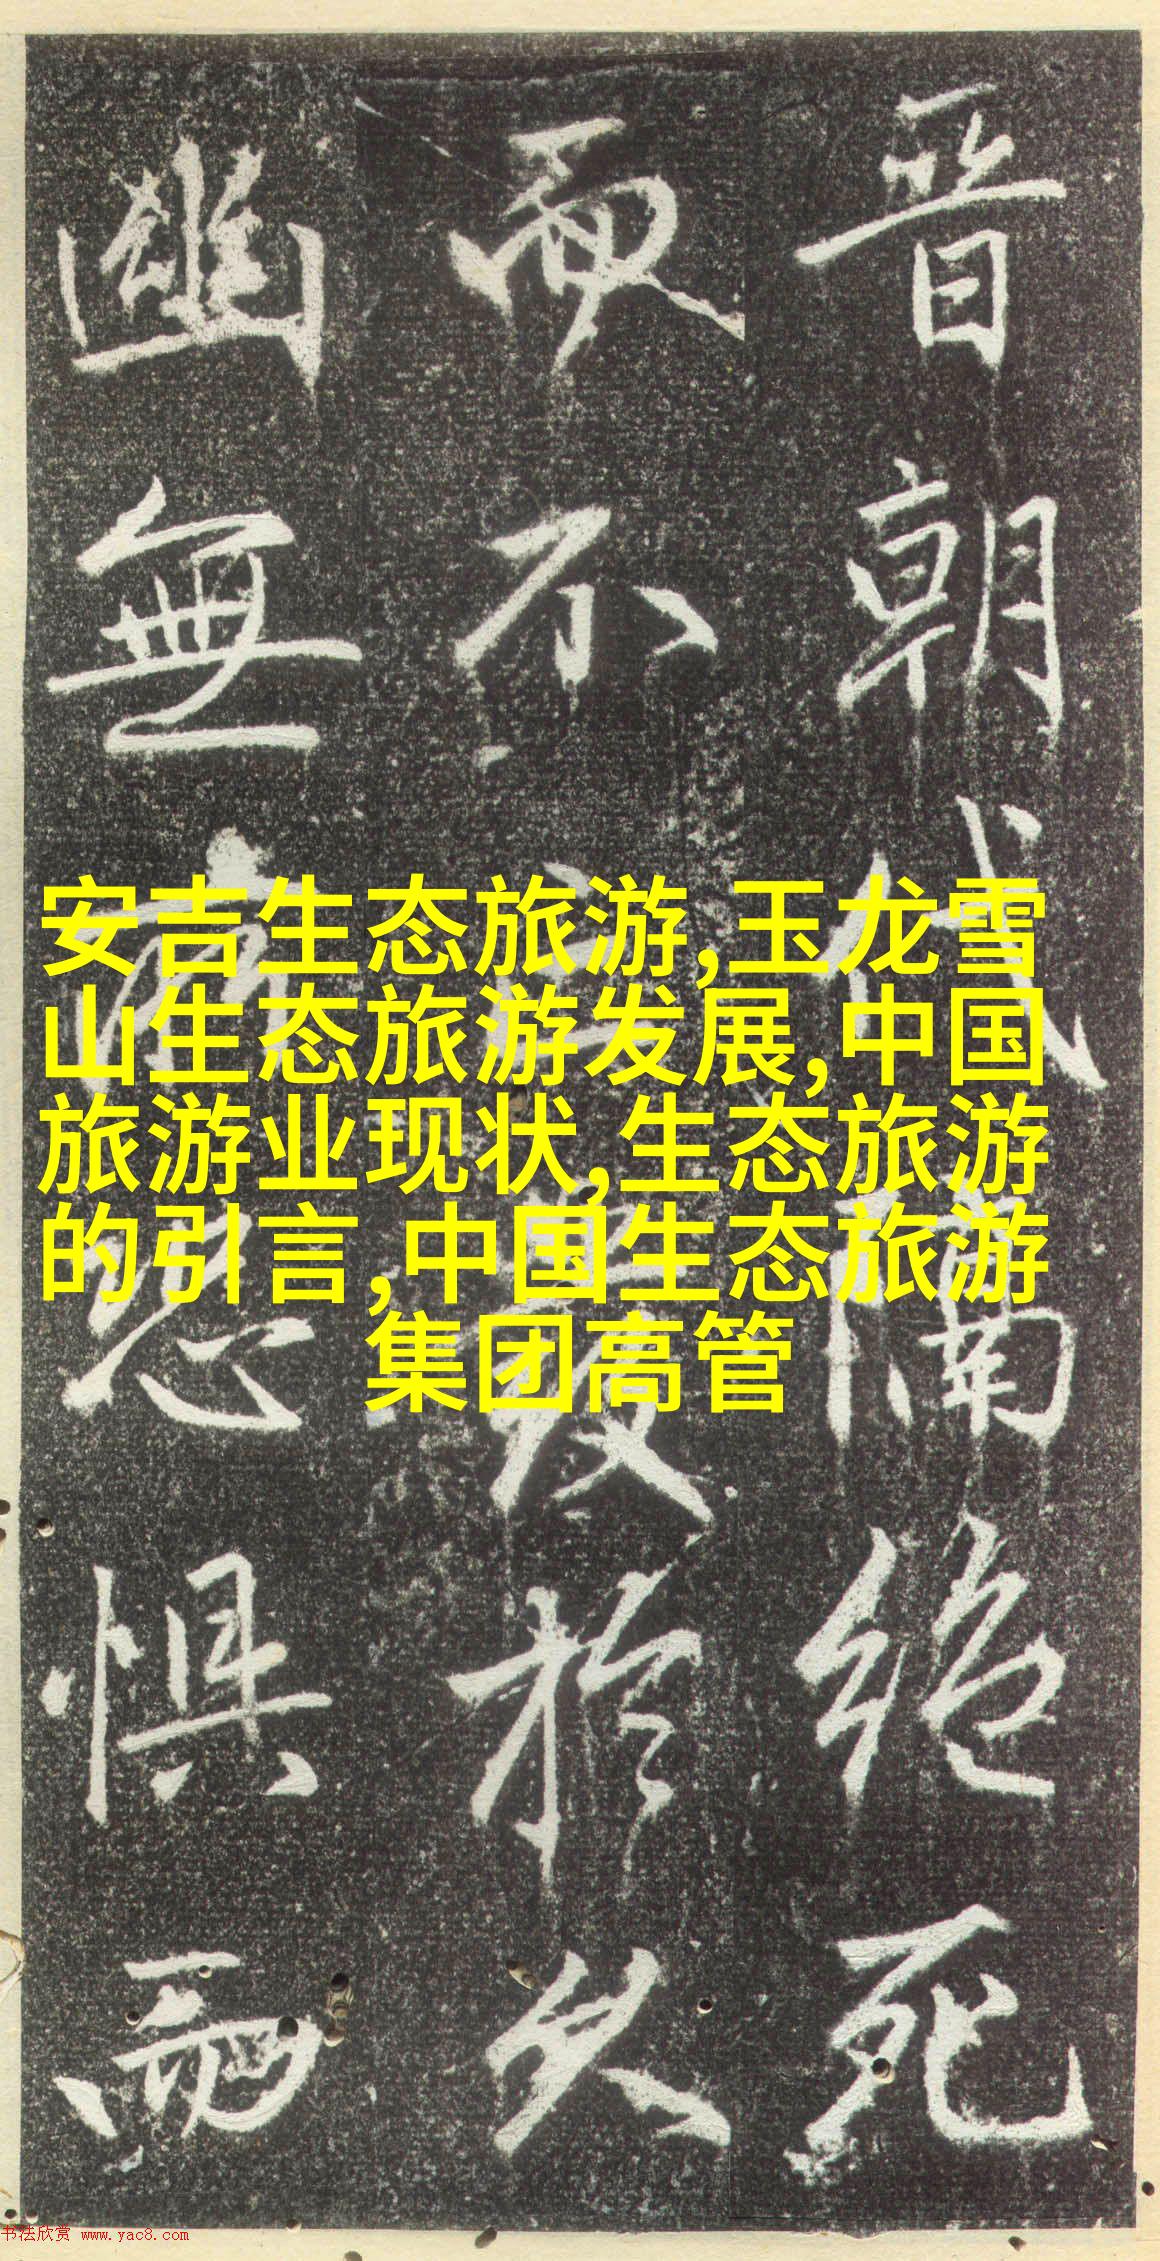 晋朝代隔絶死
而不於久
幽無惧而
安吉生态旅游,玉龙雪
山生态旅游发展,中国
旅游业现状,生态旅游
的引言,中国生态旅游
集团高管
书法欣赏 www.yac8.com